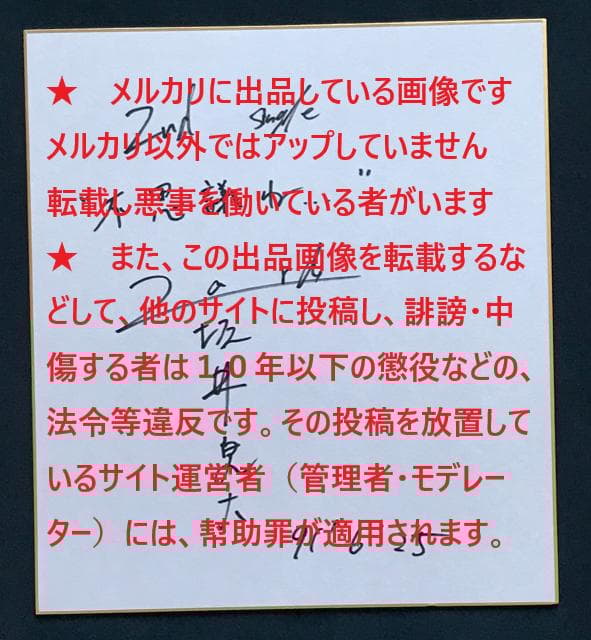 ★　メルカリに出品している画像です
メルカリ以外ではアップしていません
転載し悪事を働いている者がいます
★　また、この出品画像を転載するな
どして、他のサイトに投稿し、誹謗・中
傷する者は１０年以下の懲役などの、
法令等違反です。その投稿を放置して
いるサイト運営者（管理者・モデレー
ター）には、幇助罪が適用されます。
2nd single
不思議ね…"
Zard
坂井泉水
91 6 25